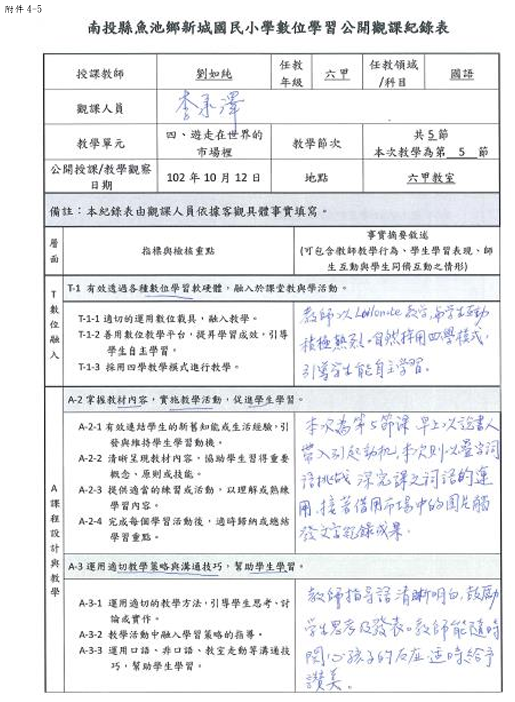 附件 4-5
南投縣魚池鄉新城國民小學數位學習公開觀課紀錄表
授課教師 劉如純 任教年級 六甲 任教領域/科目 國語
觀課人員 李承澤
教學單元 四、遊走在世界的市場裡 教學節次 共 5 節 本次教學為第 5 節
公開授課/教學觀察日期 102 年 10 月 12 日 地點 六甲教室
備註：本紀錄表由觀課人員依據客觀具體事實填寫。
層面 指標與檢核重點 事實摘要敘述
(可包含教師教學行為、學生學習表現、師生互動與學生同儕互動之情形)
T 數位融入
T-1 有效透過各種數位學習軟硬體，融入於課堂教與學活動。
T-1-1 適切的運用數位載具，融入教學。
T-1-2 善用數位教學平台，提昇學習成效，引導
學生自主學習。
T-1-3 採用四學教學模式進行教學。
教師以 教學，與學生互動
積極熱烈。自然採用四學模式，
引導學生能自主學習。
A 課程設計與教學
A-2 掌握教材內容，實施教學活動，促進學生學習。
A-2-1 有效連結學生的新舊知能或生活經驗，引
發與維持學生學習動機。
A-2-2 清晰呈現教材內容，協助學生習得重要
概念、原則或技能。
A-2-3 提供適當的練習或活動，以理解或熟練
學習內容。
A-2-4 完成每個學習活動後，適時歸納或總結
學習重點。
本次為第5節課，早上以說書人
帶入引起動機，本次則以疊字詞
語挑戰 深究課之詞語的運
用，接著借用市場中的圖片觸
發文字紀錄成果。
A-3 運用適切教學策略與溝通技巧，幫助學生學習。
A-3-1 運用適切的教學方法，引導學生思考、討
論或實作。
A-3-2 教學活動中融入學習策略的指導。
A-3-3 運用口語、非口語、教室走動等溝通技
巧，幫助學生學習。
教師指導語清晰明白，鼓勵
學生思考及發表。教師能隨時
關心孩子的反應適時給予
讚美。